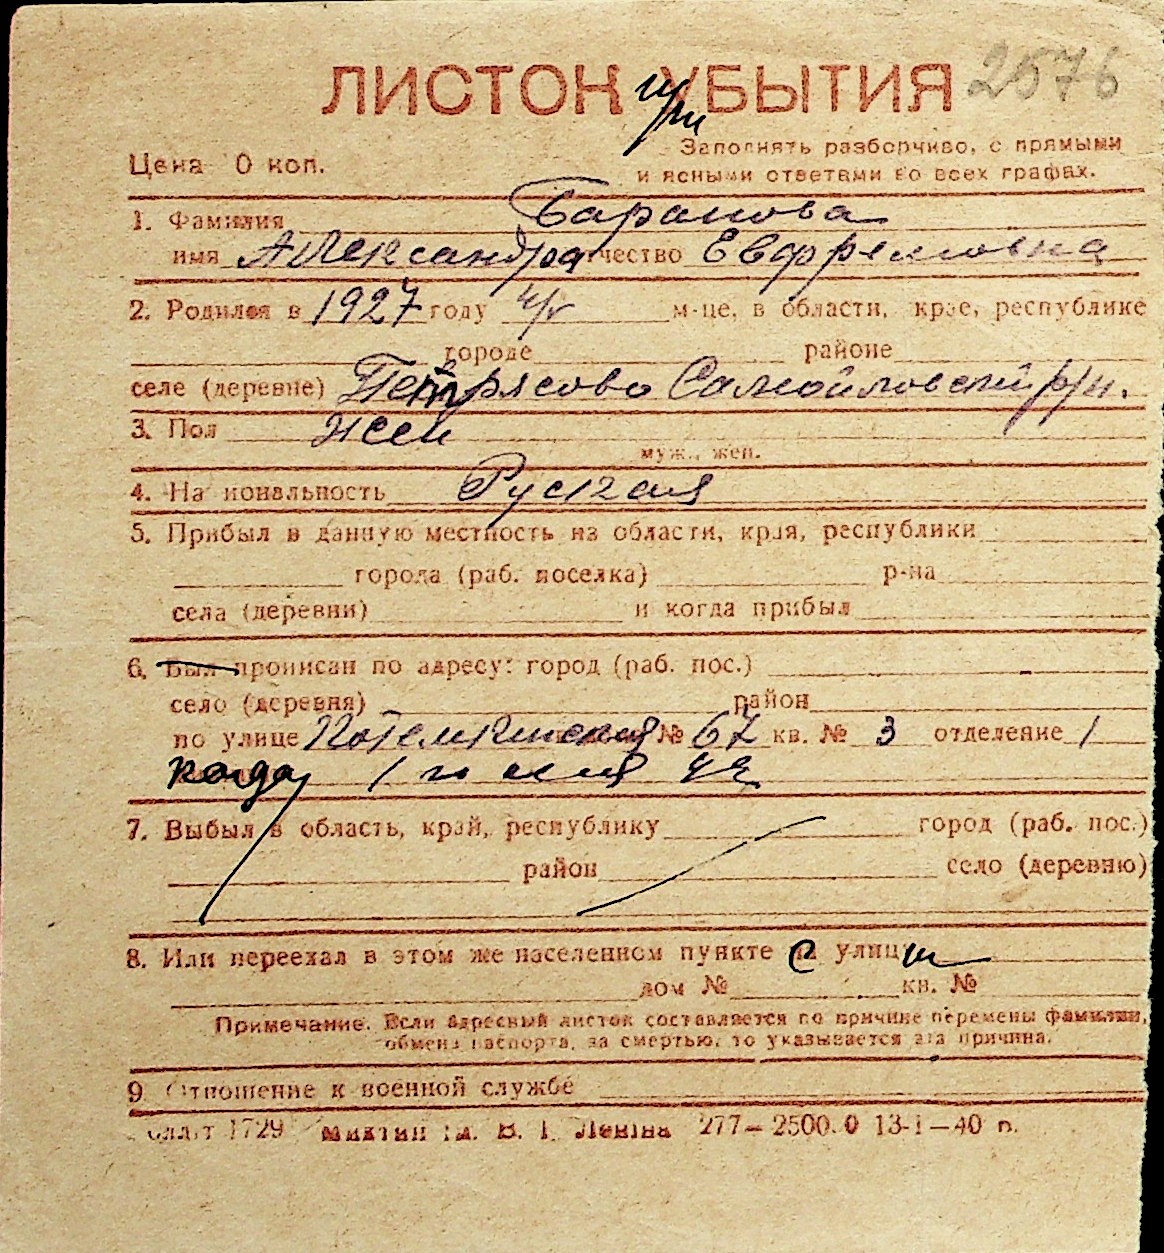 ЛИСТОК УБЫТИЯ 2576
при
Цена 0 коп. Заполнять разборчиво, с прямыми
и ясными ответами во всех графах.
1. Фамилия Баранова
имя Александра отчество Евфремовна
2. Родился в 1927 году м-це, в области, крае, республике
городе районе
селе (деревне) Петрясово Самойловский р/н.
3. Пол жен
муж., жен.
4. Национальность Руская
5. Прибыл в данную местность из области, края, республики
города (раб. поселка) р-на
села (деревни) и когда прибыл
6. Был прописан по адресу: город (раб. пос.)
село (деревня) район
по улице Потемкинская № 67 кв. № 3 отделение 1
когда 1
7. Выбыл в область, край, республику город (раб. пос.)
район село (деревню)
8. Или переехал в этом же населенном пункте с улицы
дом № кв. №
Примечание. Если адресный листок составляется по причине перемены фамилии,
обмена паспорта, за смертью, то указывается эта причина.
9 Отношение к военной службе
1729 им. В. И. Ленина 277—2500.0 13-I—40 г.